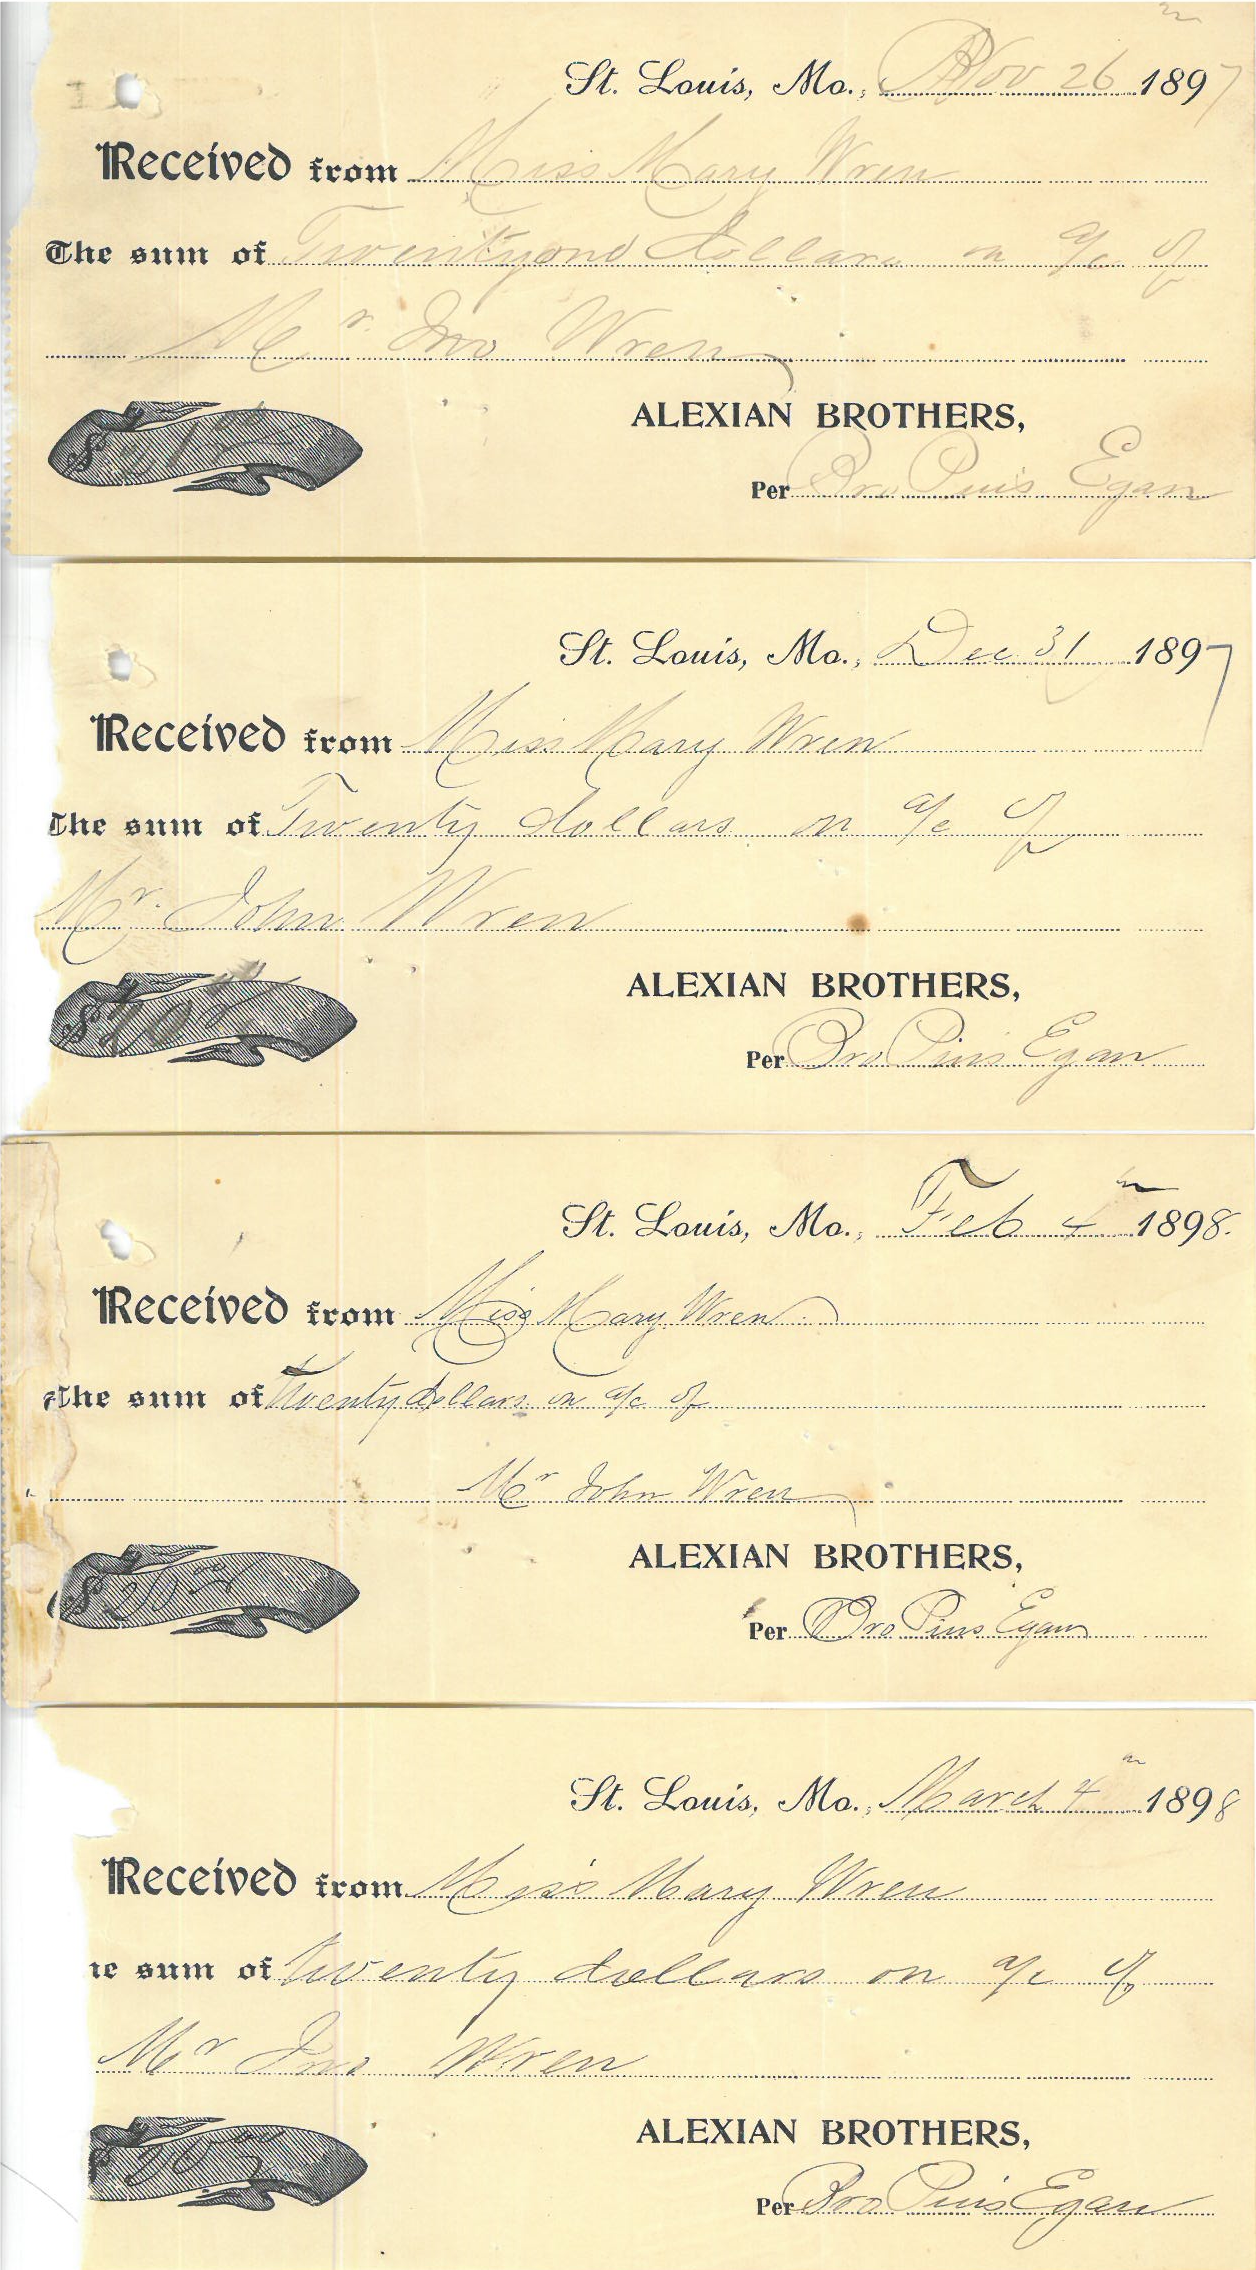 St. Louis, Mo., Nov 26 1897
Received from Miss Mary Wren
The sum of Twentyone dollars on a/c of
Mr. Jno Wren
$ 21
ALEXIAN BROTHERS,
Per Bro Pius Egan
St. Louis, Mo., Dec 31 1897
Received from Miss Mary Wren
The sum of Twenty dollars on a/c of
Mr. John Wren
$ 20
ALEXIAN BROTHERS,
Per Bro Pius Egan
St. Louis, Mo., Feb 4 1898.
Received from Miss Mary Wren
The sum of twenty dollars on a/c of
Mr John Wren
$ 20
ALEXIAN BROTHERS,
Per Bro Pius Egan
St. Louis, Mo., March 4 1898
Received from Miss Mary Wren
he sum of twenty dollars on a/c of
Mr Jno Wren
$ 20
ALEXIAN BROTHERS,
Per Bro Pius Egan